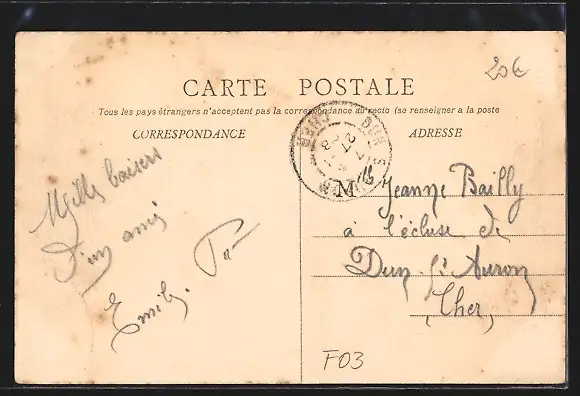 20€
CARTE POSTALE
Tous les pays étrangers n'acceptent pas la correspondance au recto (se renseigner a la poste
CORRESPONDANCE
ADRESSE
Milles baisers
D'un ami
Emile.
Mlle Jeanne Bailly
à l'écluse de
Dun-s/-Auron
(Cher)
F03